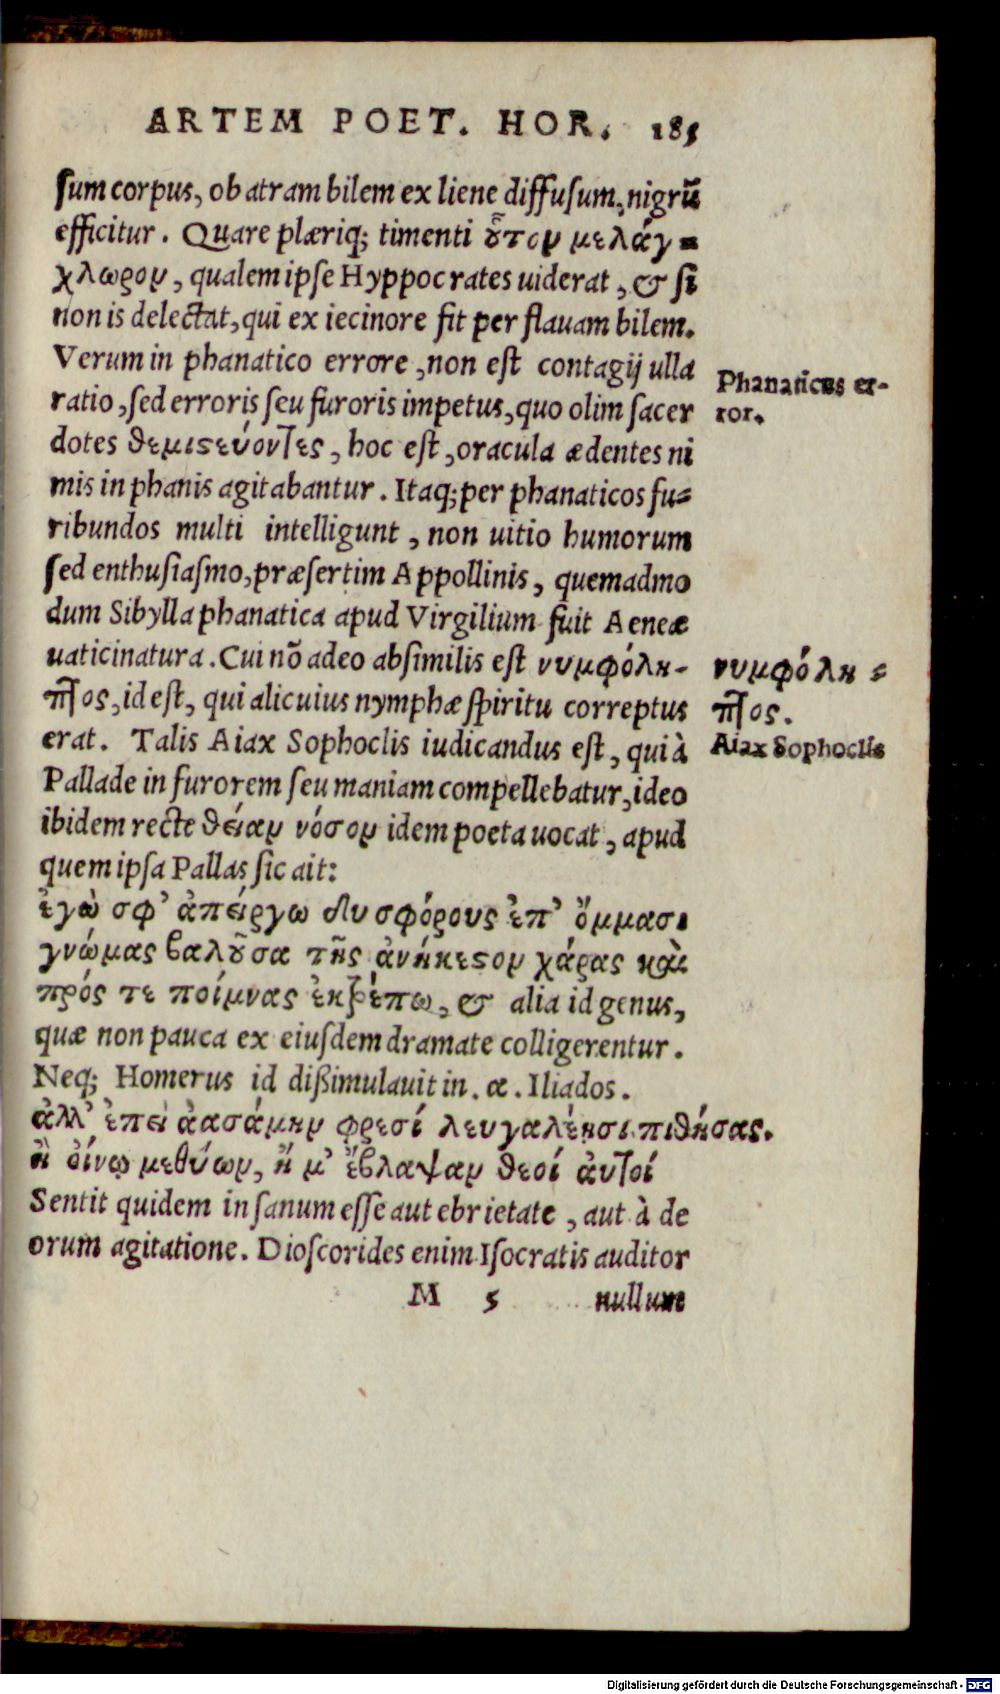 ARTEM POET. HOR. 185
ſum corpus, ob atram bilem ex liene diffuſum, nigrū
efficitur. Quare plæriq; timenti ȣ̃τον μελάγ=
χλωρον, qualem ipſe Hyppocrates uiderat, & ſi
non is delectat, qui ex iecinore fit per flauam bilem.
Verum in phanatico errore, non eſt contagij ulla
ratio, ſed erroris ſeu furoris impetus, quo olim ſacer
dotes θεμιϛεύοντες, hoc eſt, oracula ædentes ni
mis in phanis agitabantur. Itaq; per phanaticos fu=
ribundos multi intelligunt, non uitio humorum
ſed enthuſiaſmo, præſertim Appollinis, quemadmo
dum Sibylla phanatica apud Virgilium fuit Aeneæ
uaticinatura. Cui nō adeo abſimilis eſt νυμφόλη-
πτος, id eſt, qui alicuius nymphæ ſpiritu correptus
erat. Talis Aiax Sophoclis iudicandus eſt, qui à
Pallade in furorem ſeu maniam compellebatur, ideo
ibidem recte θείαν νόσον idem poeta uocat, apud
quem ipſa Pallas ſic ait:
ἐγὼ σφ’ ἀπείργω δυσφόρους ἐπ’ ὄμμασι
γνώμας βαλȣ̃σα τῆς ἀνήκεϛον χάρας καὶ
πρός τε ποίμνας ἐκτρέπω, & alia id genus,
quæ non pauca ex eiuſdem dramate colligerentur.
Neq; Homerus id dißimulauit in. α. Iliados.
ἀλλ’ ἐπεὶ ἀασάμην φρεσί λευγαλέησι πιθήσας.
ἢ οἴνῳ μεθύων, ἤ μ’ ἔβλαψαν θεοί ἀυτοί
Sentit quidem inſanum eſſe aut ebrietate, aut à de
orum agitatione. Dioſcorides enim Iſocratis auditor
M 5 nullum
Phanaticus er-
ror.
νυμφόλη=
πτος.
Aiax Sophoclis
Digitalisierung gefördert durch die Deutsche Forschungsgemeinschaft - DFG